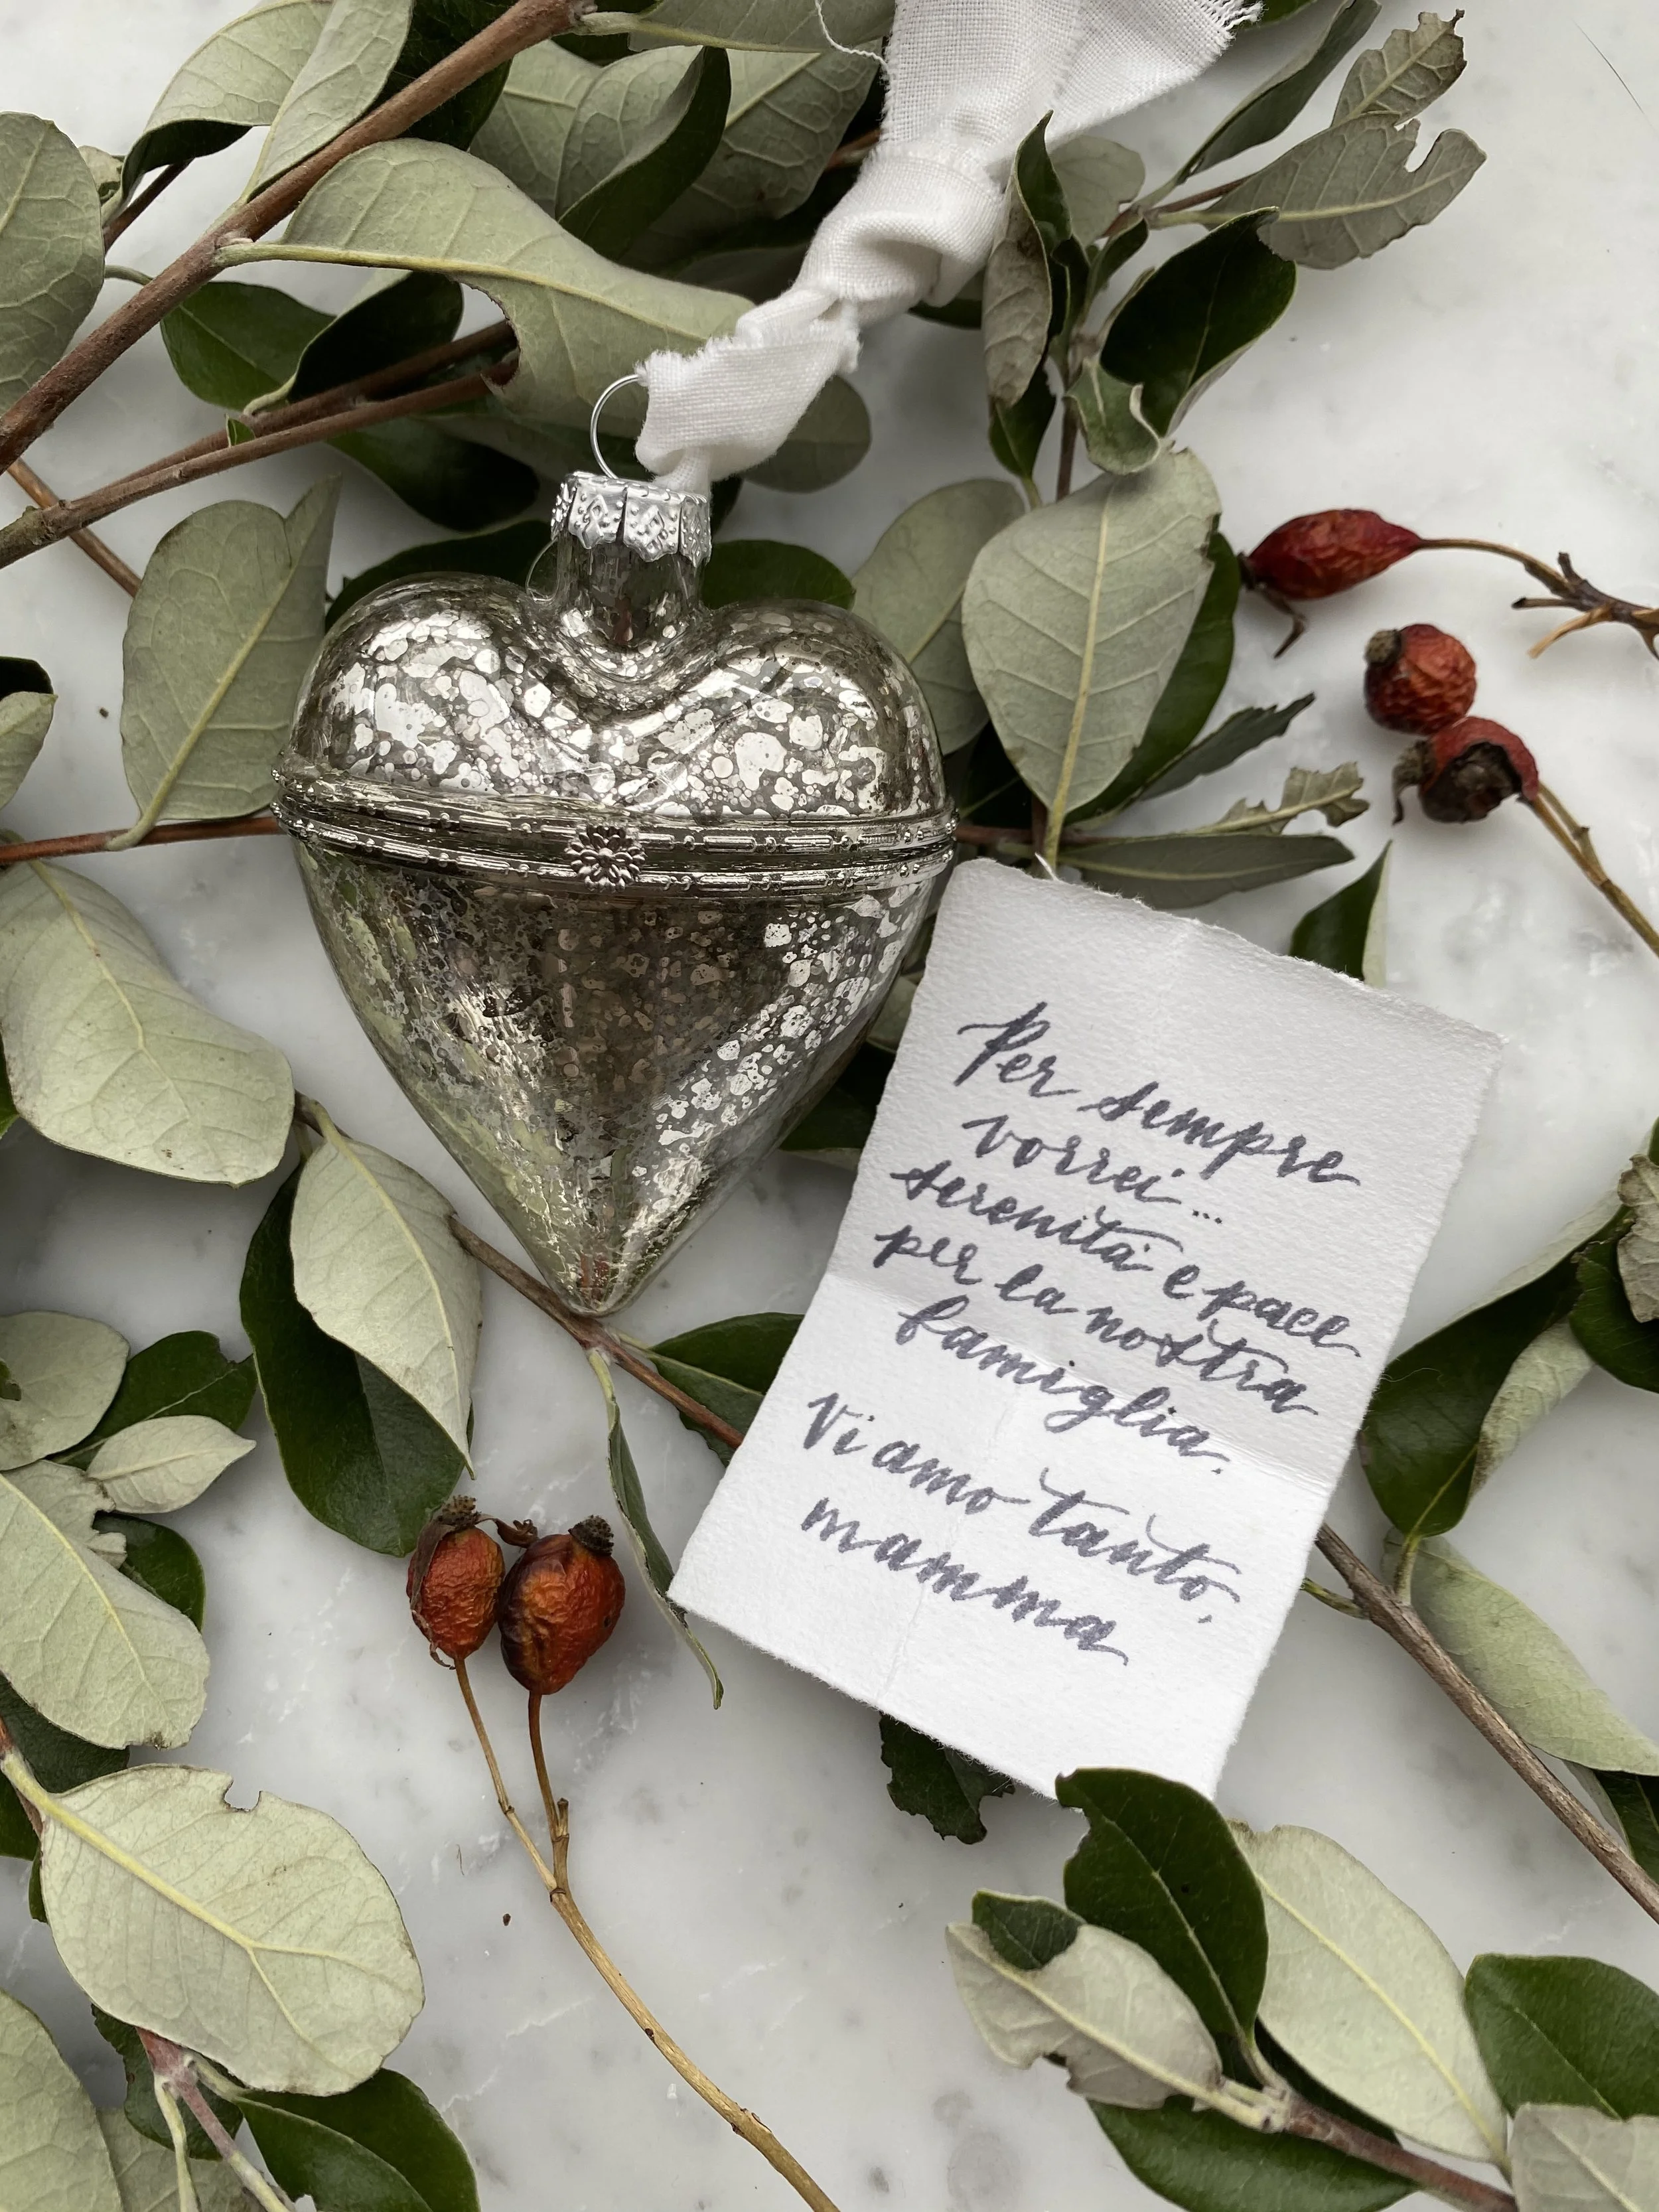 Per sempre
vorrei...
serenità e pace
per la nostra
famiglia.
Vi amo tanto,
mamma